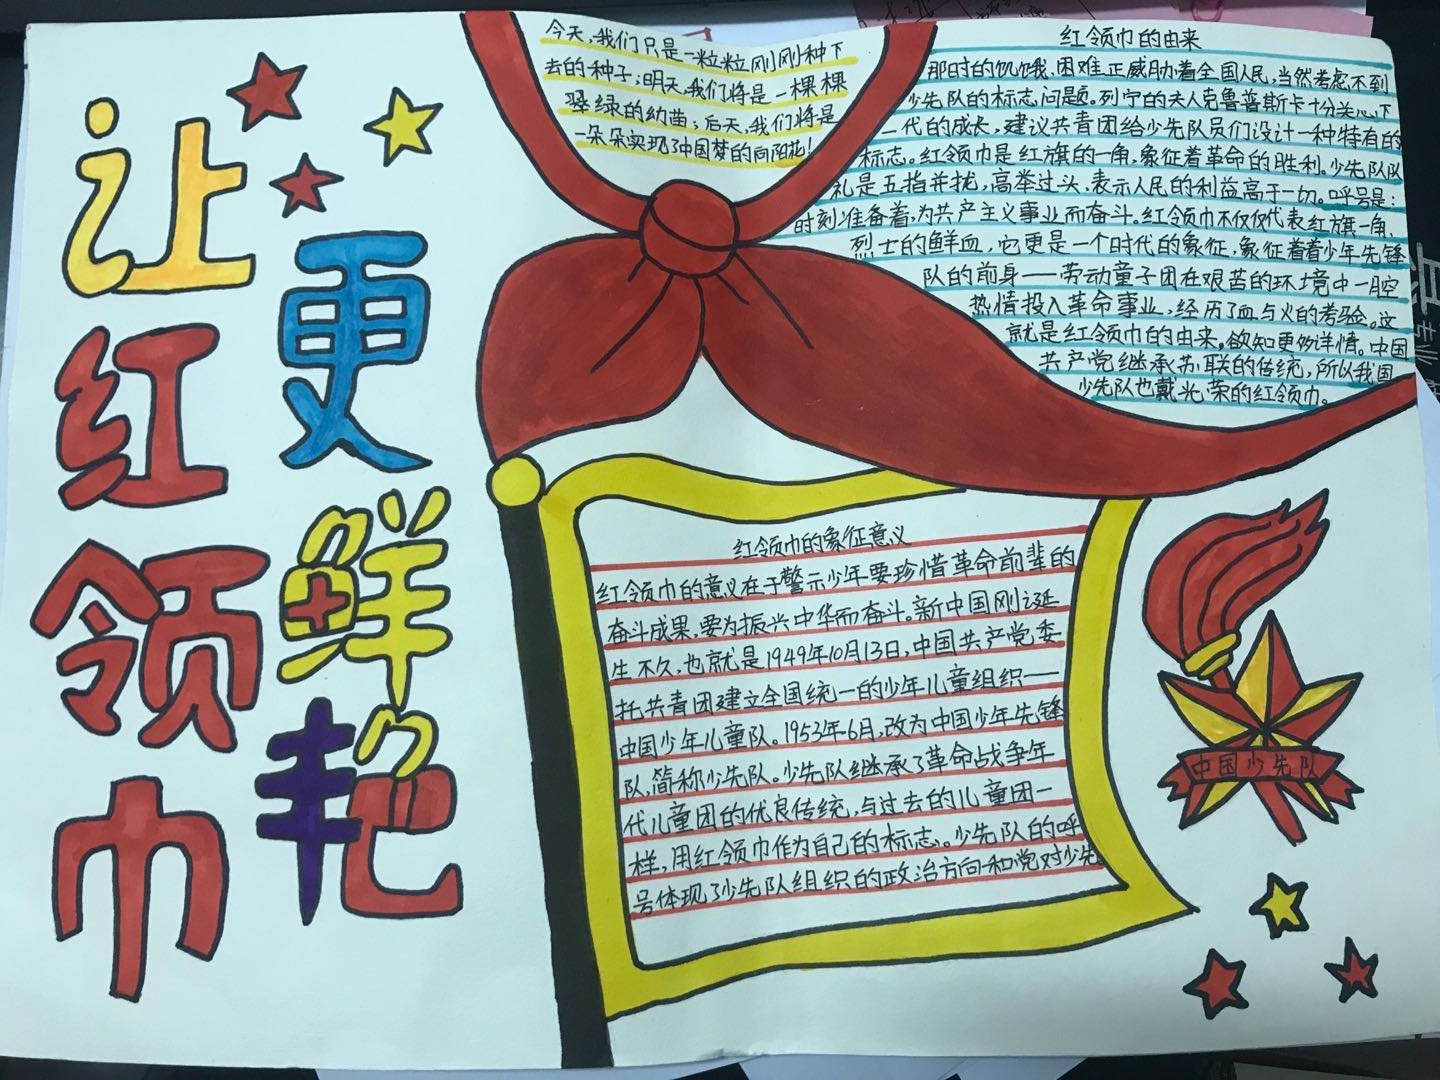 让红领巾
更鲜艳
今天,我们只是一粒粒刚刚种下
去的种子;明天,我们将是一棵棵
翠绿的幼苗;后天,我们将是
一朵朵实现了中国梦的向阳花!
红领巾的由来
那时的饥饿、困难正威胁着全国人民,当然考虑不到
少先队的标志问题。列宁的夫人克鲁普斯卡十分关心下
一代的成长,建议共青团给少先队员们设计一种特有的
标志。红领巾是红旗的一角,象征着革命的胜利。少先队队
礼是五指并拢,高举过头,表示人民的利益高于一切。呼号是:
时刻准备着,为共产主义事业而奋斗。红领巾不仅仅代表红旗一角、
烈士的鲜血,它更是一个时代的象征,象征着着少年先锋
队的前身——劳动童子团在艰苦的环境中一腔
热情投入革命事业,经历了血与火的考验。这
就是红领巾的由来。欲知更多详情。中国
共产党继承苏联的传统,所以我国
少先队也戴光荣的红领巾。
红领巾的象征意义
红领巾的意义在于警示少年要珍惜革命前辈的
奋斗成果,要为振兴中华而奋斗。新中国刚诞
生不久,也就是1949年10月13日,中国共产党委
托共青团建立全国统一的少年儿童组织——
中国少年儿童队。1953年6月,改为中国少年先锋
队,简称少先队。少先队继承了革命战争年
代儿童团的优良传统,与过去的儿童团一
样,用红领巾作为自己的标志。少先队的呼
号体现了少先队组织的政治方向和党对少先
中国少先队